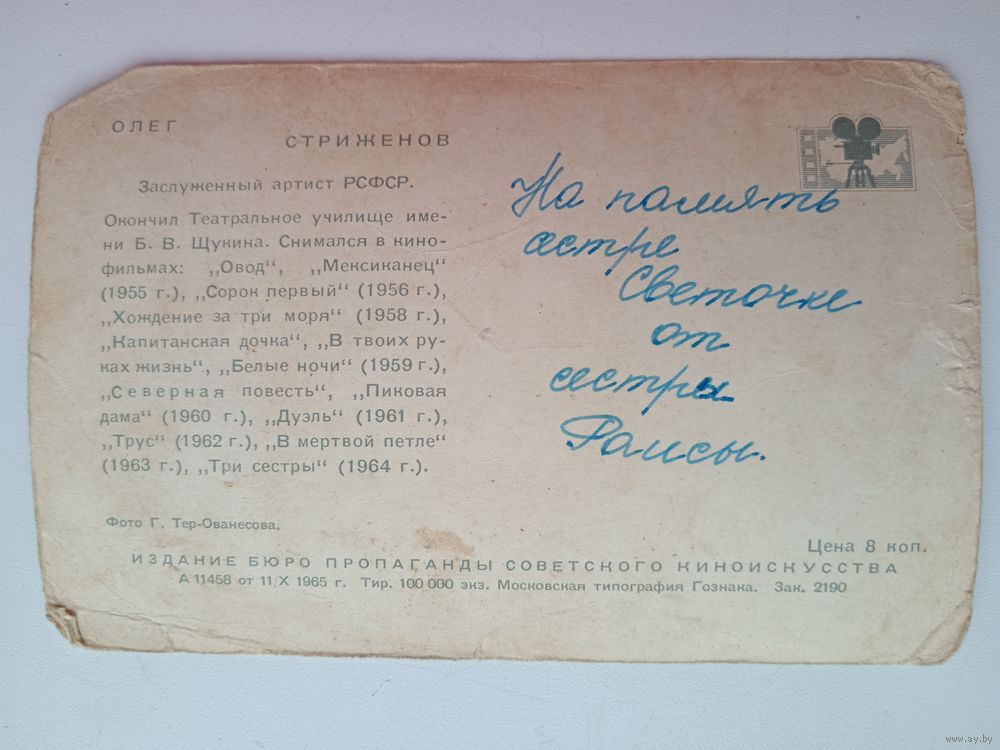 ОЛЕГ
СТРИЖЕНОВ
Заслуженный артист РСФСР.
Окончил Театральное училище име-
ни Б. В. Щукина. Снимался в кино-
фильмах: „Овод“, „Мексиканец“
(1955 г.), „Сорок первый“ (1956 г.),
„Хождение за три моря“ (1958 г.),
„Капитанская дочка“, „В твоих ру-
ках жизнь“, „Белые ночи“ (1959 г.),
„Северная повесть“, „Пиковая
дама“ (1960 г.), „Дуэль“ (1961 г.),
„Трус“ (1962 г.), „В мертвой петле“
(1963 г.), „Три сестры“ (1964 г.).
Фото Г. Тер-Ованесова.
На память
сестре
Светочке
от
сестры
Раисы.
Цена 8 коп.
ИЗДАНИЕ БЮРО ПРОПАГАНДЫ СОВЕТСКОГО КИНОИСКУССТВА
А 11458 от 11/X 1965 г. Тир. 100 000 экз. Московская типография Гознака. Зак. 2190
www.ay.by